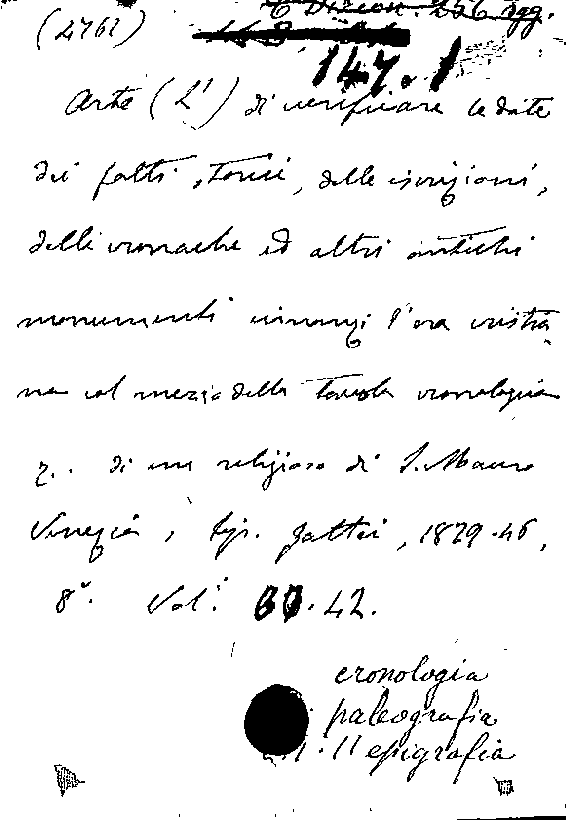 (4762) E Dizion. 256 sgg.
147.1
Arte (L') di verificare le date
dei fatti storici, delle iscrizioni,
delle cronache ed altri antichi
monumenti innanzi l'era cristia
na col mezzo della tavola cronologica
di un religioso di S. Mauro
Venezia, tip. Gattei, 1829-46,
8º. Vol.i 42.
cronologia
paleografia
epigrafia